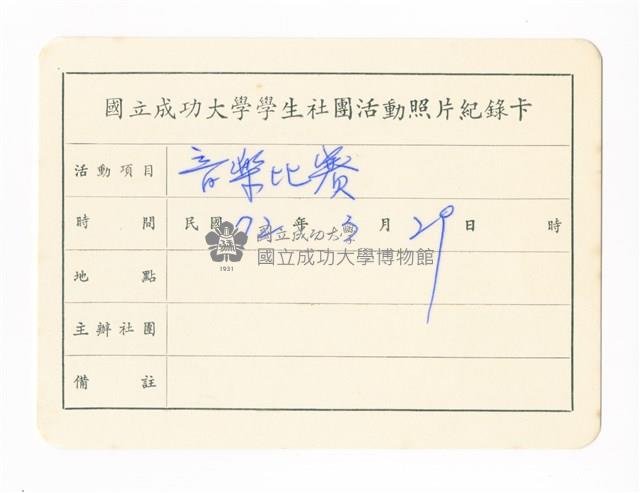 國立成功大學學生社團活動照片紀錄卡
活動項目 音樂比賽
時間 民國72年3月29日 時
國立成功大學
國立成功大學博物館
1931
地點
主辦社團
備註